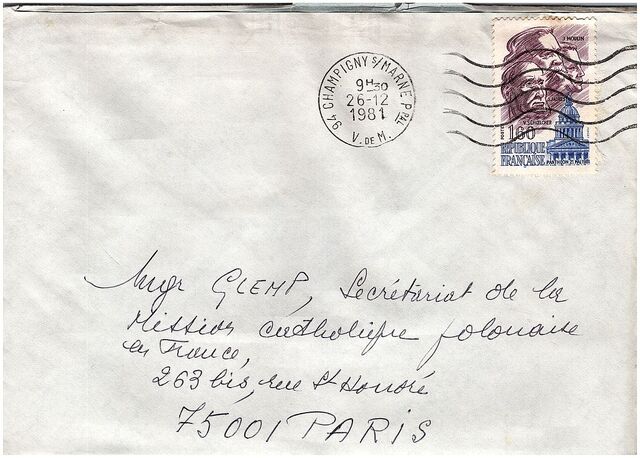 94 CHAMPIGNY S/MARNE Ppal
9H30
26-12
1981
V. DE M.
J MOULIN
V. SCHOELCHER
POSTES 1,60
RÉPUBLIQUE
FRANÇAISE
PANTHEON 21 MAI 1981
Mgr GLEMP, Secrétariat de la
Mission catholique polonaise
en France,
263 bis, rue St Honoré
75001 PARIS